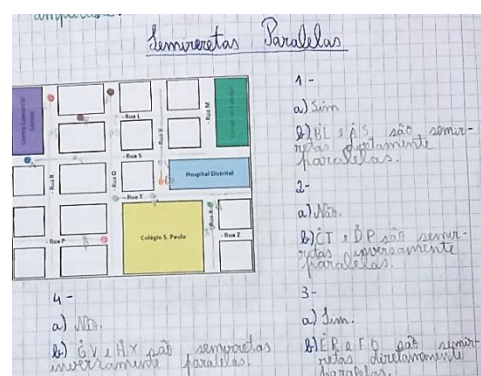 Semirretas Paralelas
Rua L
Rua M
Rua S
Rua V
Rua R
Rua O
Rua T
Hospital Distrital
Colégio S. Paulo
Rua X
Rua Z
Rua P
1-
a) Sim
b) ḂL e ȦS são semir-
retas diretamente
paralelas.
2-
a) Não.
b) ĊT e ḊP são semir-
retas inversamente
paralelas.
3-
a) Sim.
b) ĖR e ḞO são semir-
retas diretamente
paralelas.
4-
a) Não.
b) ĠV e ḢX são semirretas
inversamente paralelas.